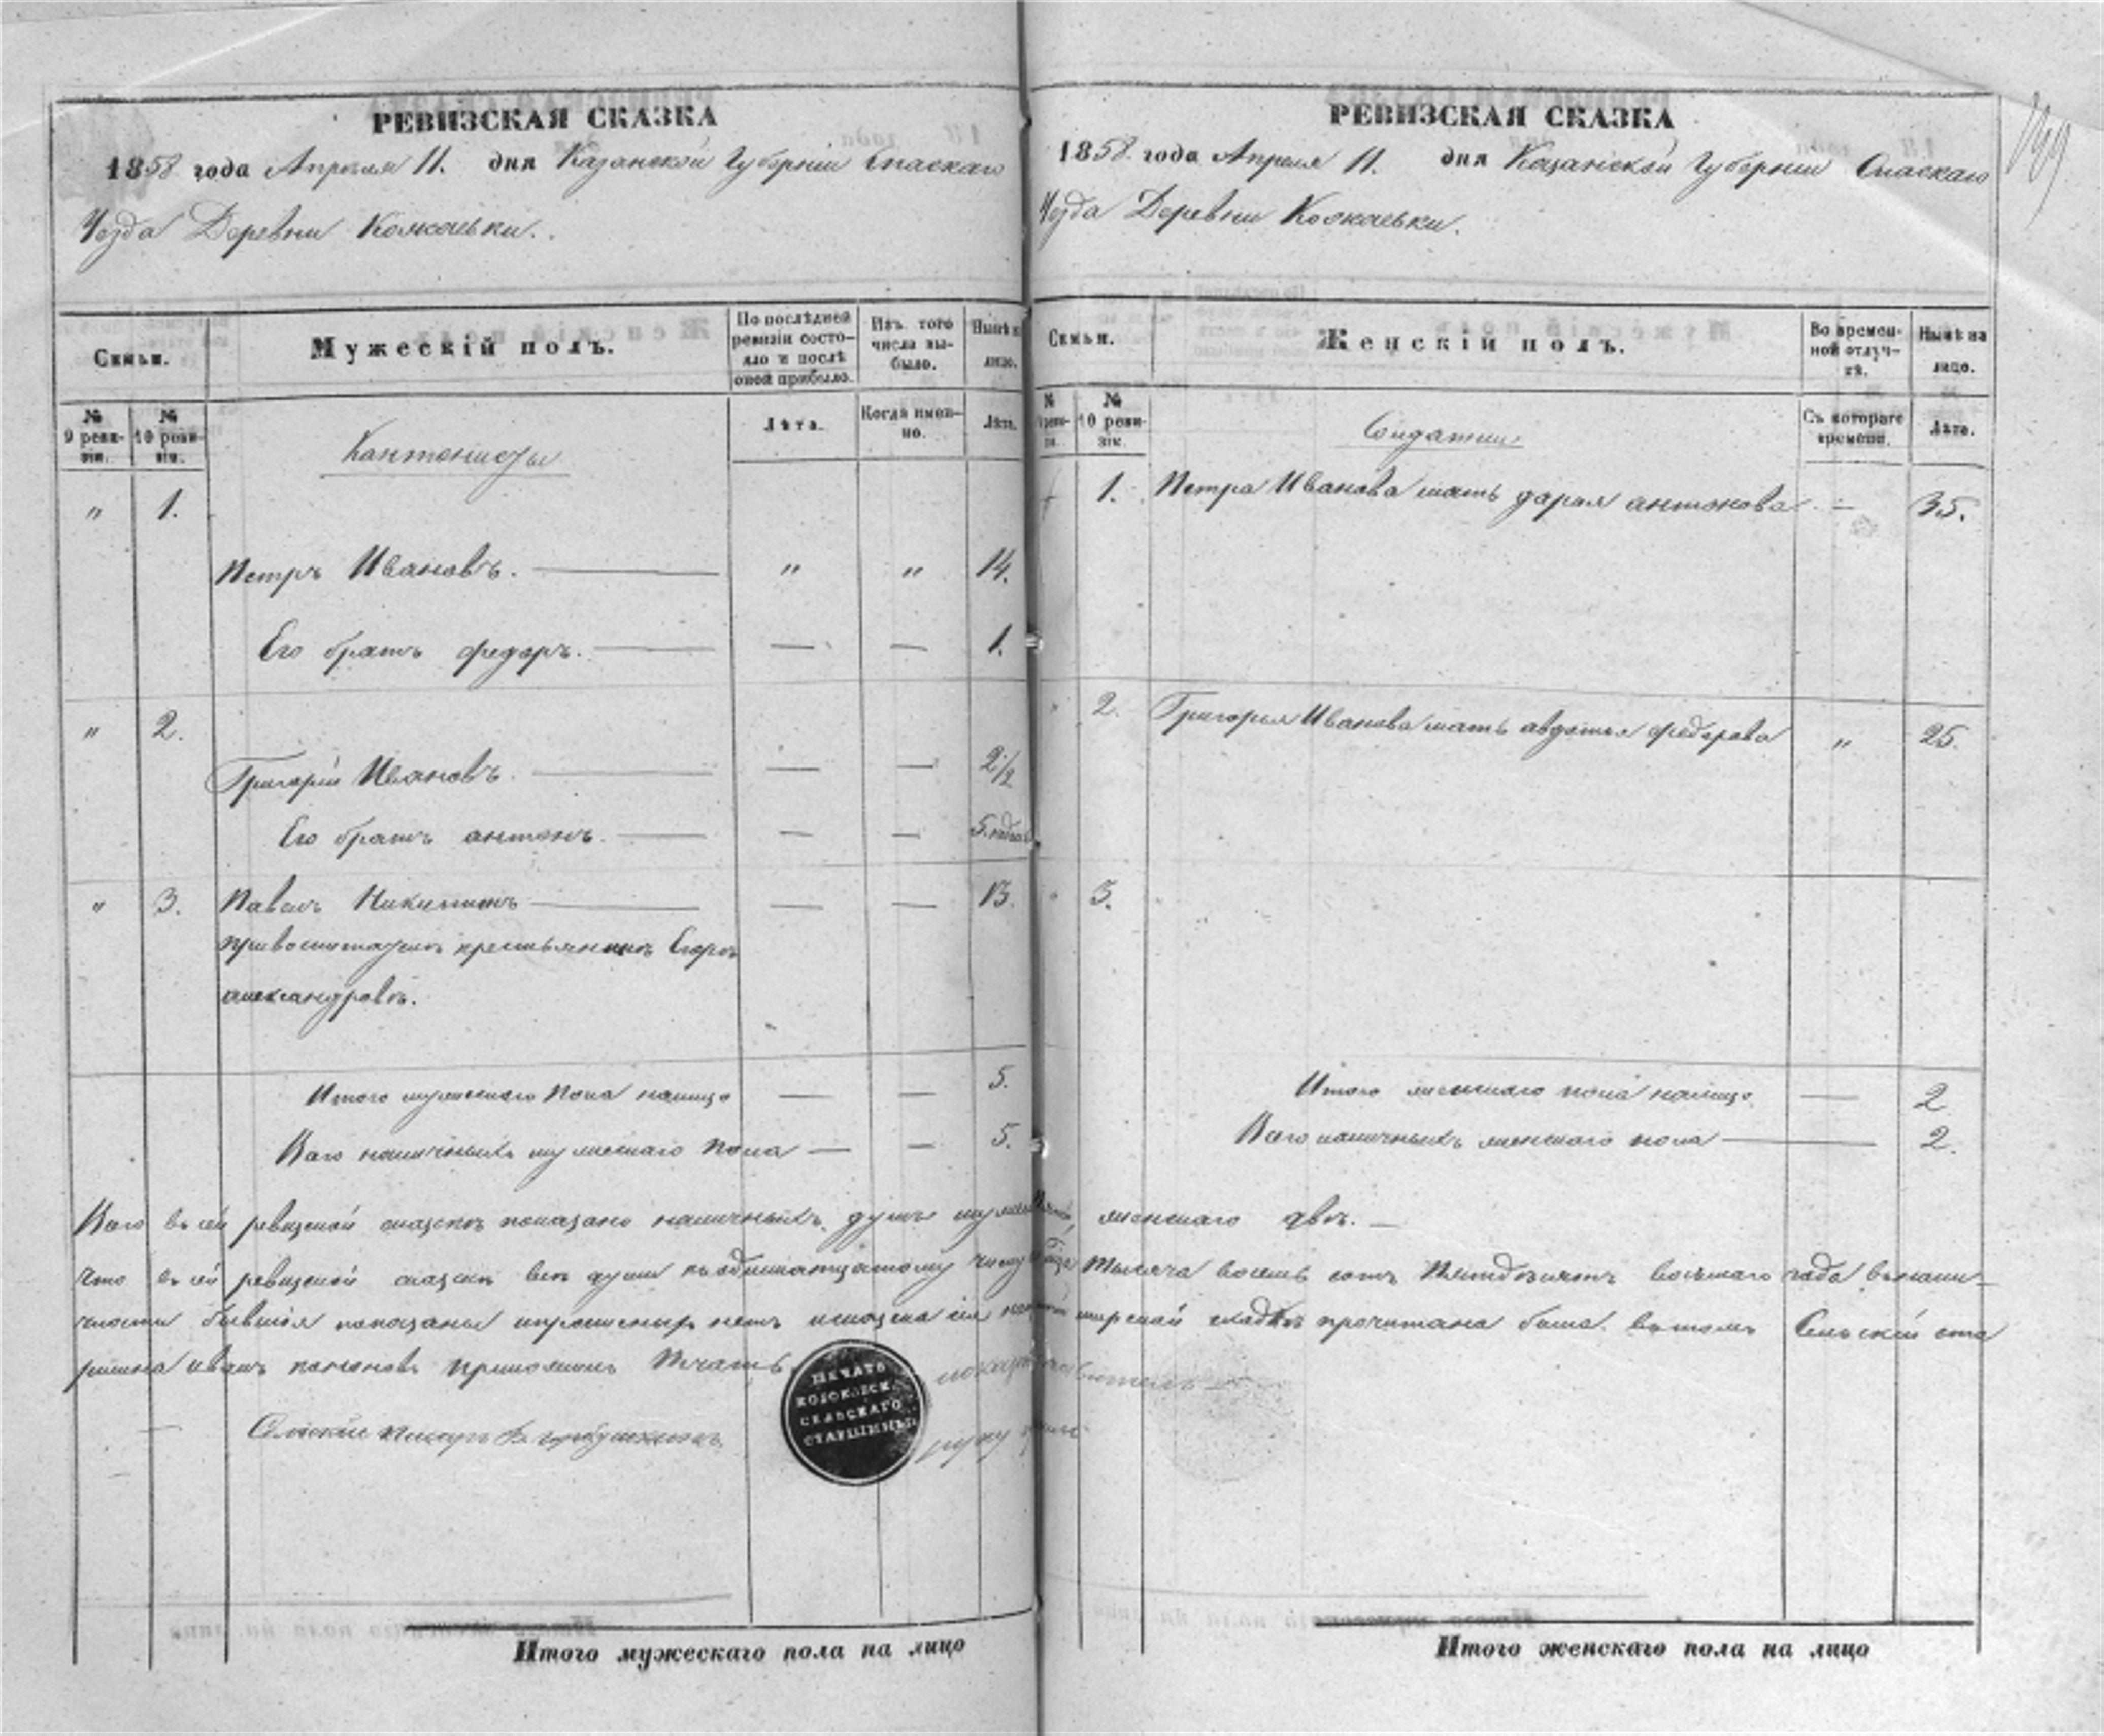 РЕВИЗСКАЯ СКАЗКА
1858 года Апреля 11. дня Казанской Губернии Спаскаго
Уезда Деревни
Семьи.
Мужескій полъ.
По послѣдней ревизіи состояло и послѣ оной прибыло.
Изъ того числа выбыло.
Нынѣ на лицо.
№ 9 ревизіи.
№ 10 ревизіи.
Кантонисты
Лѣта.
Когда именно.
Лѣта.
" 1.
Петръ Ивановъ. " " 14.
Его братъ федоръ. 1.
" 2.
Григорій Ивановъ. 2 1/2
Его братъ антонъ. 5.
" 3. Павелъ Никитинъ 13.
крестьянинъ Егоръ
александровъ.
Итого мужескаго пола налицо 5.
Всего наличныхъ мужескаго пола 5.
РЕВИЗСКАЯ СКАЗКА
1858 года Апреля 11. дня Казанской Губернии Спаскаго
Уезда Деревни
Семьи.
Женскій полъ.
Во временной отлучкѣ.
Нынѣ на лицо.
№ 10 ревизіи.
Солдатки
Съ котораго времени.
Лѣта.
1. Петра Иванова мать дарья антонова 35.
2. Григорья Иванова мать авдотья федорова " 25.
3.
Итого женскаго пола налицо 2
Всего наличныхъ женскаго пола 2.
Всего в сей ревизской сказке показано наличныхъ душъ женскаго две.
Что в сей ревизской сказке все души къ одинатцатому числу тысяча восемь сотъ Петдесятъ восьмаго года в налич-
ности бывшія показаны прочитана была. Сельскій ста
ршина иванъ приложилъ Печать
Сельской писарь
руку
ПЕЧАТЬ
СЕЛЬСКАГО
СТАРШИНЫ
Итого мужескаго пола на лицо
Итого женскаго пола на лицо